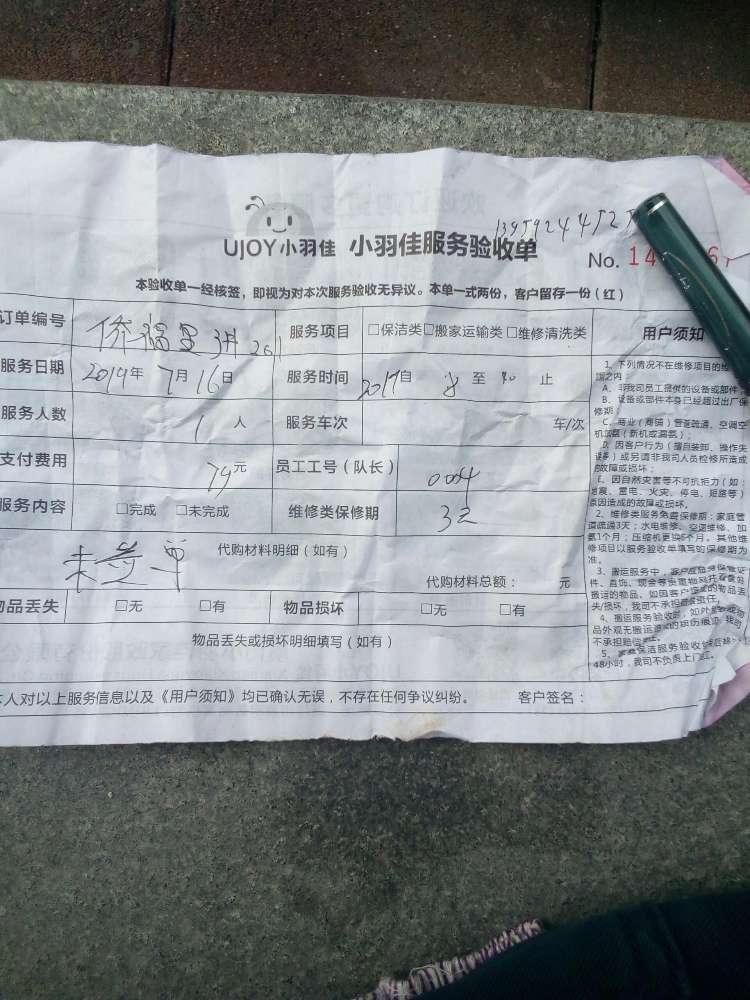 UJOY小羽佳 小羽佳服务验收单
No. 14
本验收单一经核签，即视为对本次服务验收无异议。本单一式两份，客户留存一份（红）
订单编号 侨福里 服务项目 □保洁类□搬家运输类□维修清洗类 用户须知
服务日期 2019年 7月16日 服务时间 自 至 止
服务人数 1人 服务车次 车/次
支付费用 79元 员工工号（队长） 004
服务内容 □完成 □未完成 维修类保修期 3
未 单 代购材料明细（如有）
代购材料总额： 元
物品丢失 □无 □有 物品损坏 □无 □有
物品丢失或损坏明细填写（如有）
本人对以上服务信息以及《用户须知》均已确认无误，不存在任何争议纠纷。 客户签名：
1、下列情况不在维修项目的维
围之内：
A、非我司员工提供的设备或部件
B、设备或部件本身已经超过出厂保
修期；
C、商业（商铺）管道疏通、空调空
机加氨（新机或漏氨）；
D、因客户行为（擅自装卸、操作失
误等）或另请非我司人员检修所造成
的故障或损坏；
E、因自然灾害等不可抗拒力（如：
地震、雷电、火灾、停电、短路等）
原因造成的故障或损坏。
2、维修类服务免费保修期：家庭管
道疏通3天；水电维修、空调维修、加
氨1个月；压缩机更换6个月。其他维
修项目以服务验收单填写的保修期为
准。
3、搬运服务中，客户应自身保管证
件、首饰、现金等贵重物品
搬运的物品。如因客户 物品丢
失/损坏，我司不承担 责任。
4、搬运服务验收时，如外
品外观无搬运造成的损伤痕迹，我司
不承担赔偿
5、家庭保洁服务验收
48小时，我司不负责上门